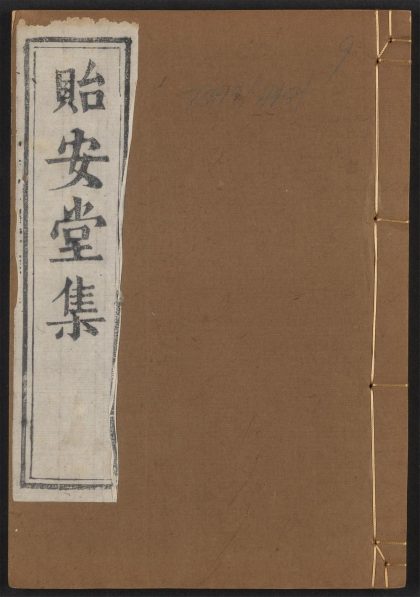 貽安堂集